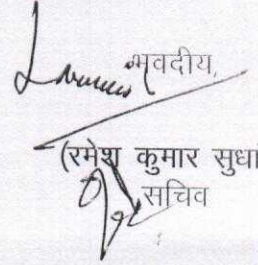 भवदीय,
(रमेश कुमार सुधां
सचिव